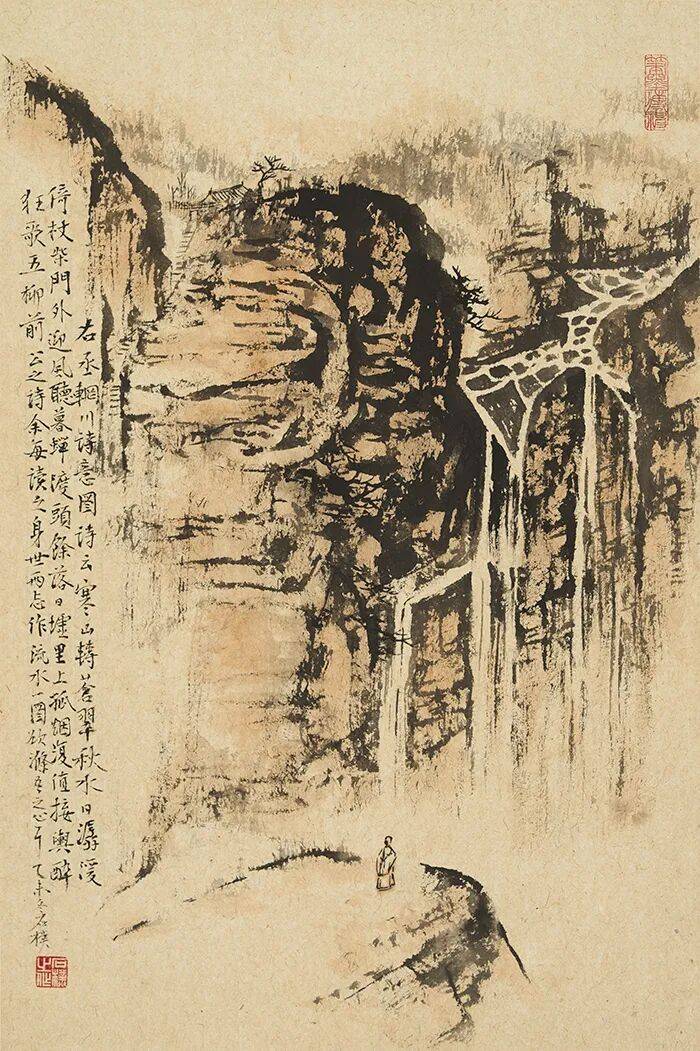 右丞輞川詩意図詩云寒山轉蒼翠秋水日潺湲
倚杖柴門外迎風聽暮蟬渡頭餘落日墟里上孤烟復值接輿醉
狂歌五柳前公之詩余每讀之身世两忘作流水一圖欲滌吾之心耳 乙未石樸